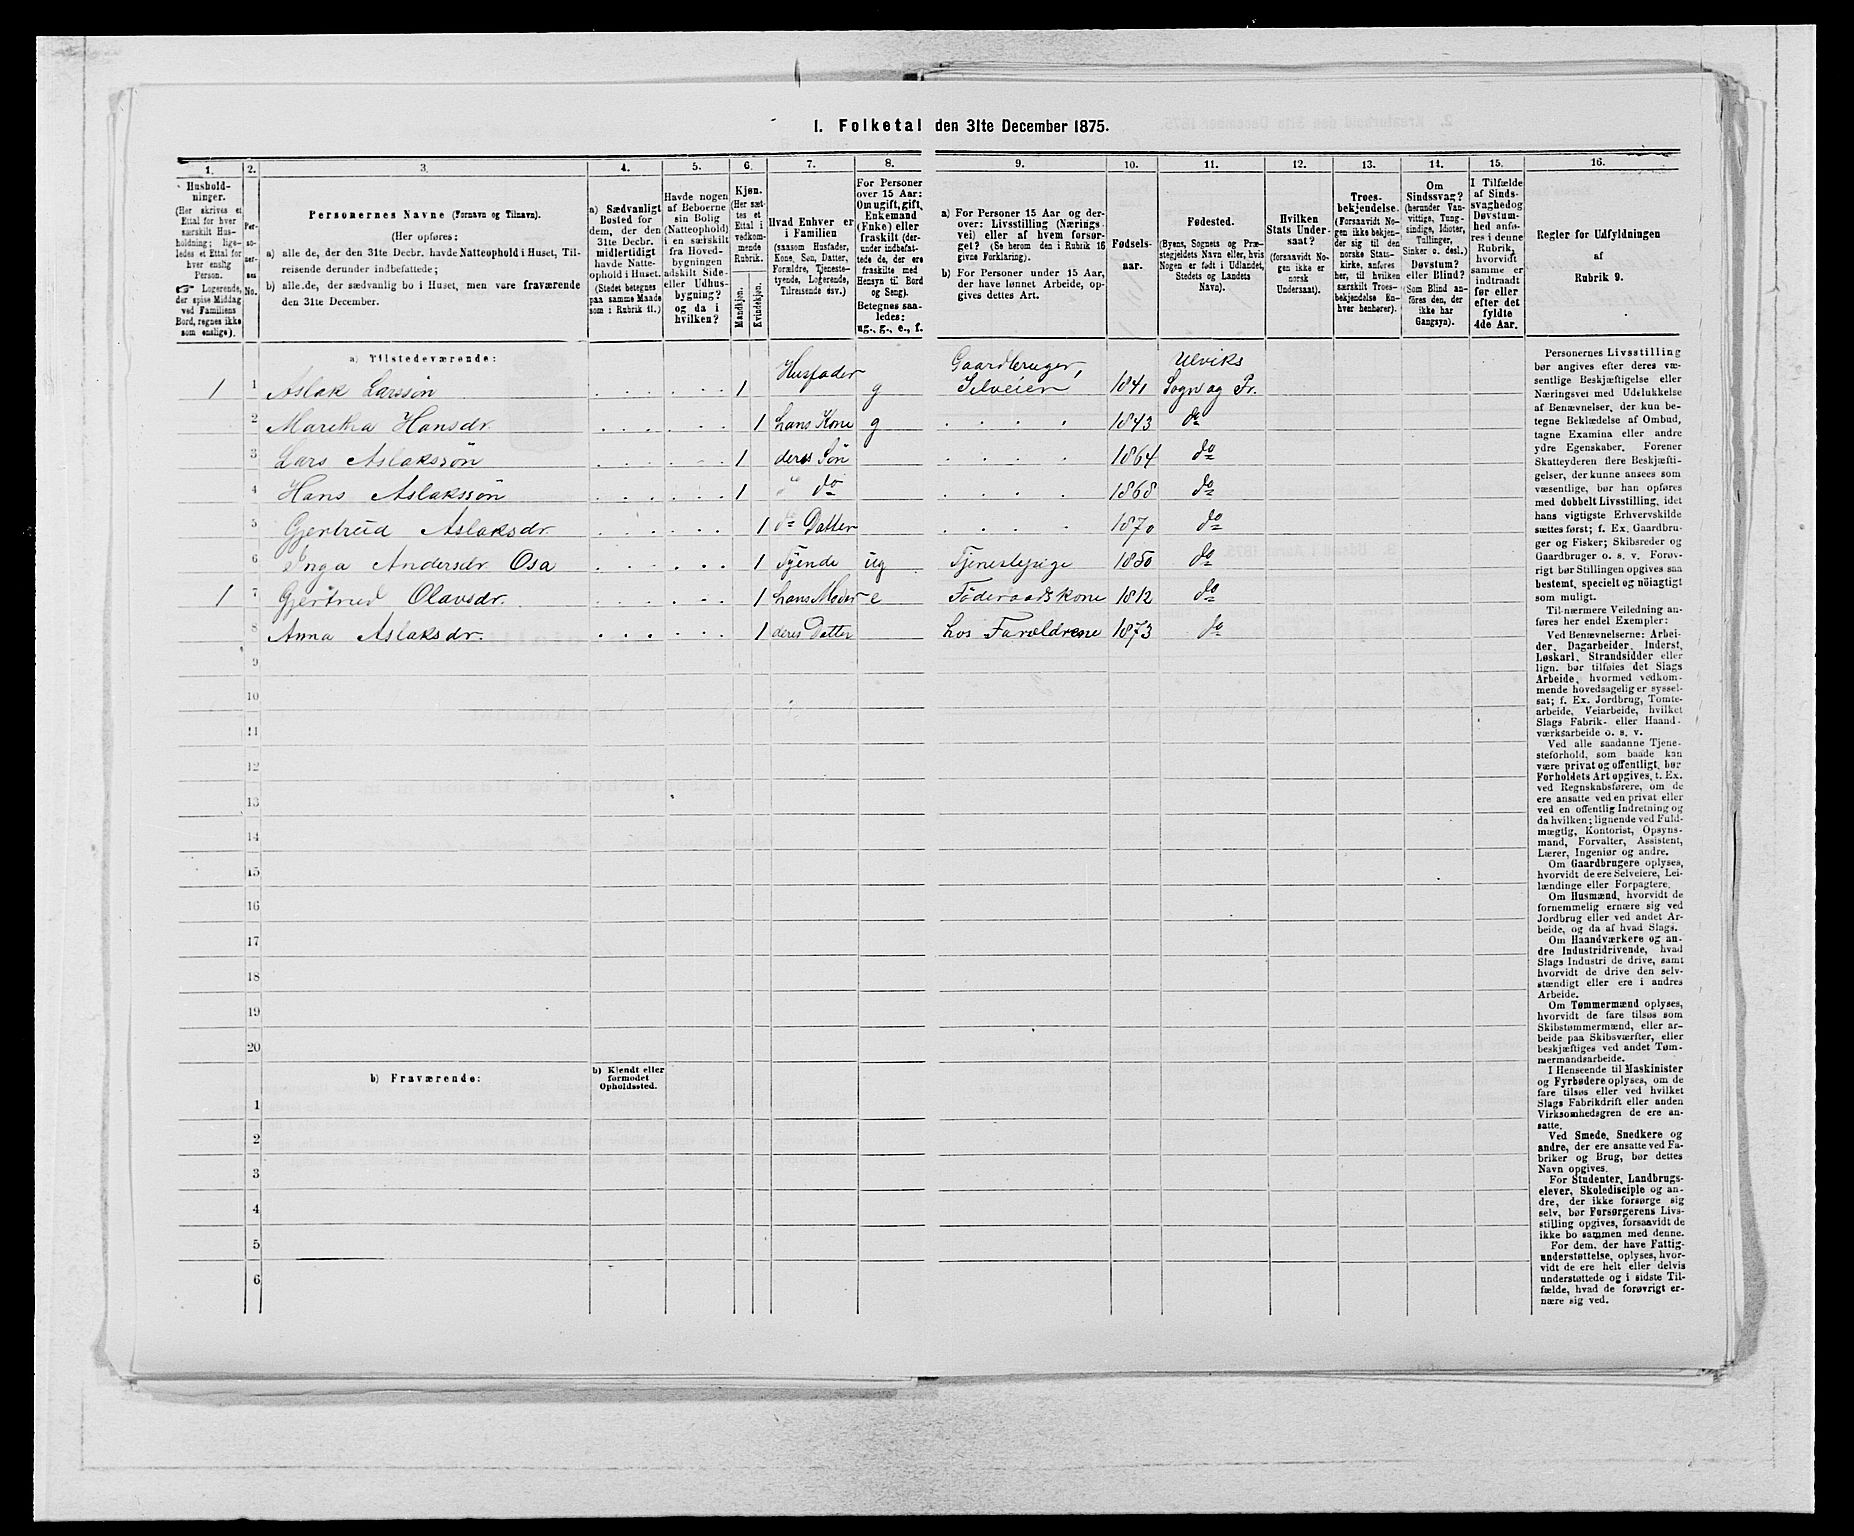 I. Folketal den 31te December 1875.
1. 2. 3. 4. 5. 6. 7. 8. 9. 10. 11. 12. 13. 14. 15. 16.
Husholdninger.
(Her skrives et
Ettal for hver
særskilt Husholdning; ligeledes
et Ettal for
hver enslig
Person.
☞ Logerende,
der spise Middag
ved Familiens
Bord, regnes ikke
som enslige).
Personernes No.
Personernes Navne (Fornavn og Tilnavn).
(Her opføres:
a) alle de, der den 31te Decbr. havde Natteophold i Huset, Tilreisende
derunder indbefattede;
b) alle de, der sædvanlig bo i Huset, men vare fraværende
den 31te December.
a) Sædvanligt
Bosted for
dem, der den
31te Decbr.
midlertidigt
havde Natteophold
i Huset.
(Stedet betegnes
paa samme Maade
som i Rubrik 11.)
Havde nogen
af Beboerne
sin Bolig
(Natteophold)
i en særskilt
fra Hovedbygningen
adskilt Side-
eller Udhusbygning?
og da i
hvilken?
Kjøn.
(Her sættes
et
Ettal i
vedkommende
Rubrik.
Mandkjøn.
Kvindekjøn.
Hvad Enhver er
i Familien
(saasom Husfader,
Kone, Søn, Datter,
Forældre, Tjenestetyende,
Logerende,
Tilreisende osv.)
For Personer
over 15 Aar:
Om ugift, gift,
Enkemand
(Enke) eller
fraskilt (derunder
indbefattede
de, der ere
fraskilte med
Hensyn til Bord
og Seng).
Betegnes saaledes:
ug., g., e., f.
a) For Personer 15 Aar og derover:
Livsstilling (Næringsvei)
eller af hvem forsørget?
(Se herom den i Rubrik 16
givne Forklaring).
b) For Personer under 15 Aar,
der have lønnet Arbeide, opgives
dettes Art.
Fødselsaar.
Fødested.
(Byens, Sognets og Præstegjeldets
Navn eller, hvis
Nogen er født i Udlandet,
Stedets og Landets
Navn).
Hvilken
Stats Undersaat?
(forsaavidt Nogen
ikke er
norsk
Undersaat).
Troesbekjendelse.
(Forsaavidt Nogen
ikke bekjender
sig til den
norske Statskirke,
anføres
her, til hvilken
særskilt Troesbekjendelse
Enhver
henhører).
Om
Sindssvag?
(herunder Vanvittige,
Tungsindige,
Idioter,
Tullinger,
Sinker o. desl.)
Døvstum?
eller Blind?
(Som Blind anføres
den, der
ikke har
Gangsyn).
I Tilfælde
af Sindssvaghed
og
Døvstumhed
anføres
i denne
Rubrik,
hvorvidt
samme er
indtraadt
før eller
efter det
fyldte
4de Aar.
Regler for Udfyldningen
af
Rubrik 9.
a) Tilstedeværende:
1 1 Aslak Larssøn 1 Husfader g Gaardbruger, Selveier 1841 Ulviks Sogn og Pr.
2 Martha Hansdr. 1 hans Kone g 1843 do
3 Lars Aslakssøn 1 deres Søn 1864 do
4 Hans Aslakssøn 1 do do 1868 do
5 Gjertrud Aslaksdr. 1 do Datter 1870 do
6 Inga Andersdr. Osa 1 Tyende ug Tjenestepige 1850 do
1 7 Gjertrud Olavsdr. 1 hans Moder e Føderaadskone 1812 do
8 Anna Aslaksdr. 1 deres Datter hos Forældrene 1873 do
9
10
11
12
13
14
15
16
17
18
19
20
b) Fraværende:
b) Kjendt eller
formodet
Opholdssted.
1
2
3
4
5
6
Personernes Livsstilling
bør angives efter deres væsentlige
Beskjæftigelse eller
Næringsvei med Udelukkelse
af Benævnelser, der kun betegne
Beklædelse af Ombud,
tagne Examina eller andre
ydre Egenskaber. Forener
Skatteyderen flere Beskjæftigelser,
der kunne ansees som
væsentlige, bør han opføres
med dobbelt Livsstilling, idet
hans vigtigste Erhvervskilde
sættes først; f. Ex. Gaardbruger
og Fisker; Skibsreder og
Gaardbruger o. s. v. Forøvrigt
bør Stillingen opgives saa
bestemt, specielt og nøiagtigt
som muligt.
Til nærmere Veiledning anføres
her endel Exempler:
Ved Benævnelserne: Arbeider,
Dagarbeider, Inderst,
Løskarl, Strandsidder eller
lign. bør tilføies det Slags
Arbeide, hvormed vedkommende
hovedsagelig er sysselsat;
f. Ex. Jordbrug, Tomtearbeide,
Veiarbeide, hvilket
Slags Fabrik- eller Haandværksarbeide
o. s. v.
Ved alle saadanne Tjenesteforhold,
som baade kan
være privat og offentligt, bør
Forholdets Art opgives, t. Ex.
ved Regnskabsførere, om de
ere ansatte ved en privat eller
ved en offentlig Indretning og
da hvilken; lignende ved Fuldmægtig,
Kontorist, Opsynsmand,
Forvalter, Assistent,
Lærer, Ingeniør og andre.
Om Gaardbrugere oplyses,
hvorvidt de ere Selveiere, Leilændinge
eller Forpagtere.
Om Husmænd, hvorvidt de
fornemmelig ernære sig ved
Jordbrug eller ved andet Arbeide,
og da af hvad Slags.
Om Haandværkere og andre
Industridrivende, hvad
Slags Industri de drive, samt
hvorvidt de drive den selvstændigt
eller ere i andres
Arbeide.
Om Tømmermænd oplyses,
hvorvidt de fare tilsøs som
Skibstømmermænd, eller arbeide
paa Skibsværfter, eller
beskjæftiges ved andet Tømmermandsarbeide.
I Henseende til Maskinister
og Fyrbødere oplyses, om de
fare tilsøs eller ved hvilket
Slags Fabrikdrift eller anden
Virksomhedsgren de ere ansatte.
Ved Smede, Snedkere og
andre, der ere ansatte ved Fabriker
og Brug, bør dettes
Navn opgives.
For Studenter, Landbrugselever,
Skoledisciple og andre,
der ikke forsørge sig
selv, bør Forsørgerens Livsstilling
opgives, forsaavidt de
ikke bo sammen med denne.
For dem, der have Fattigunderstøttelse,
oplyses, hvorvidt
de ere helt eller delvis
understøttede og i sidste Tilfælde,
hvad de forøvrigt ernære
sig ved.